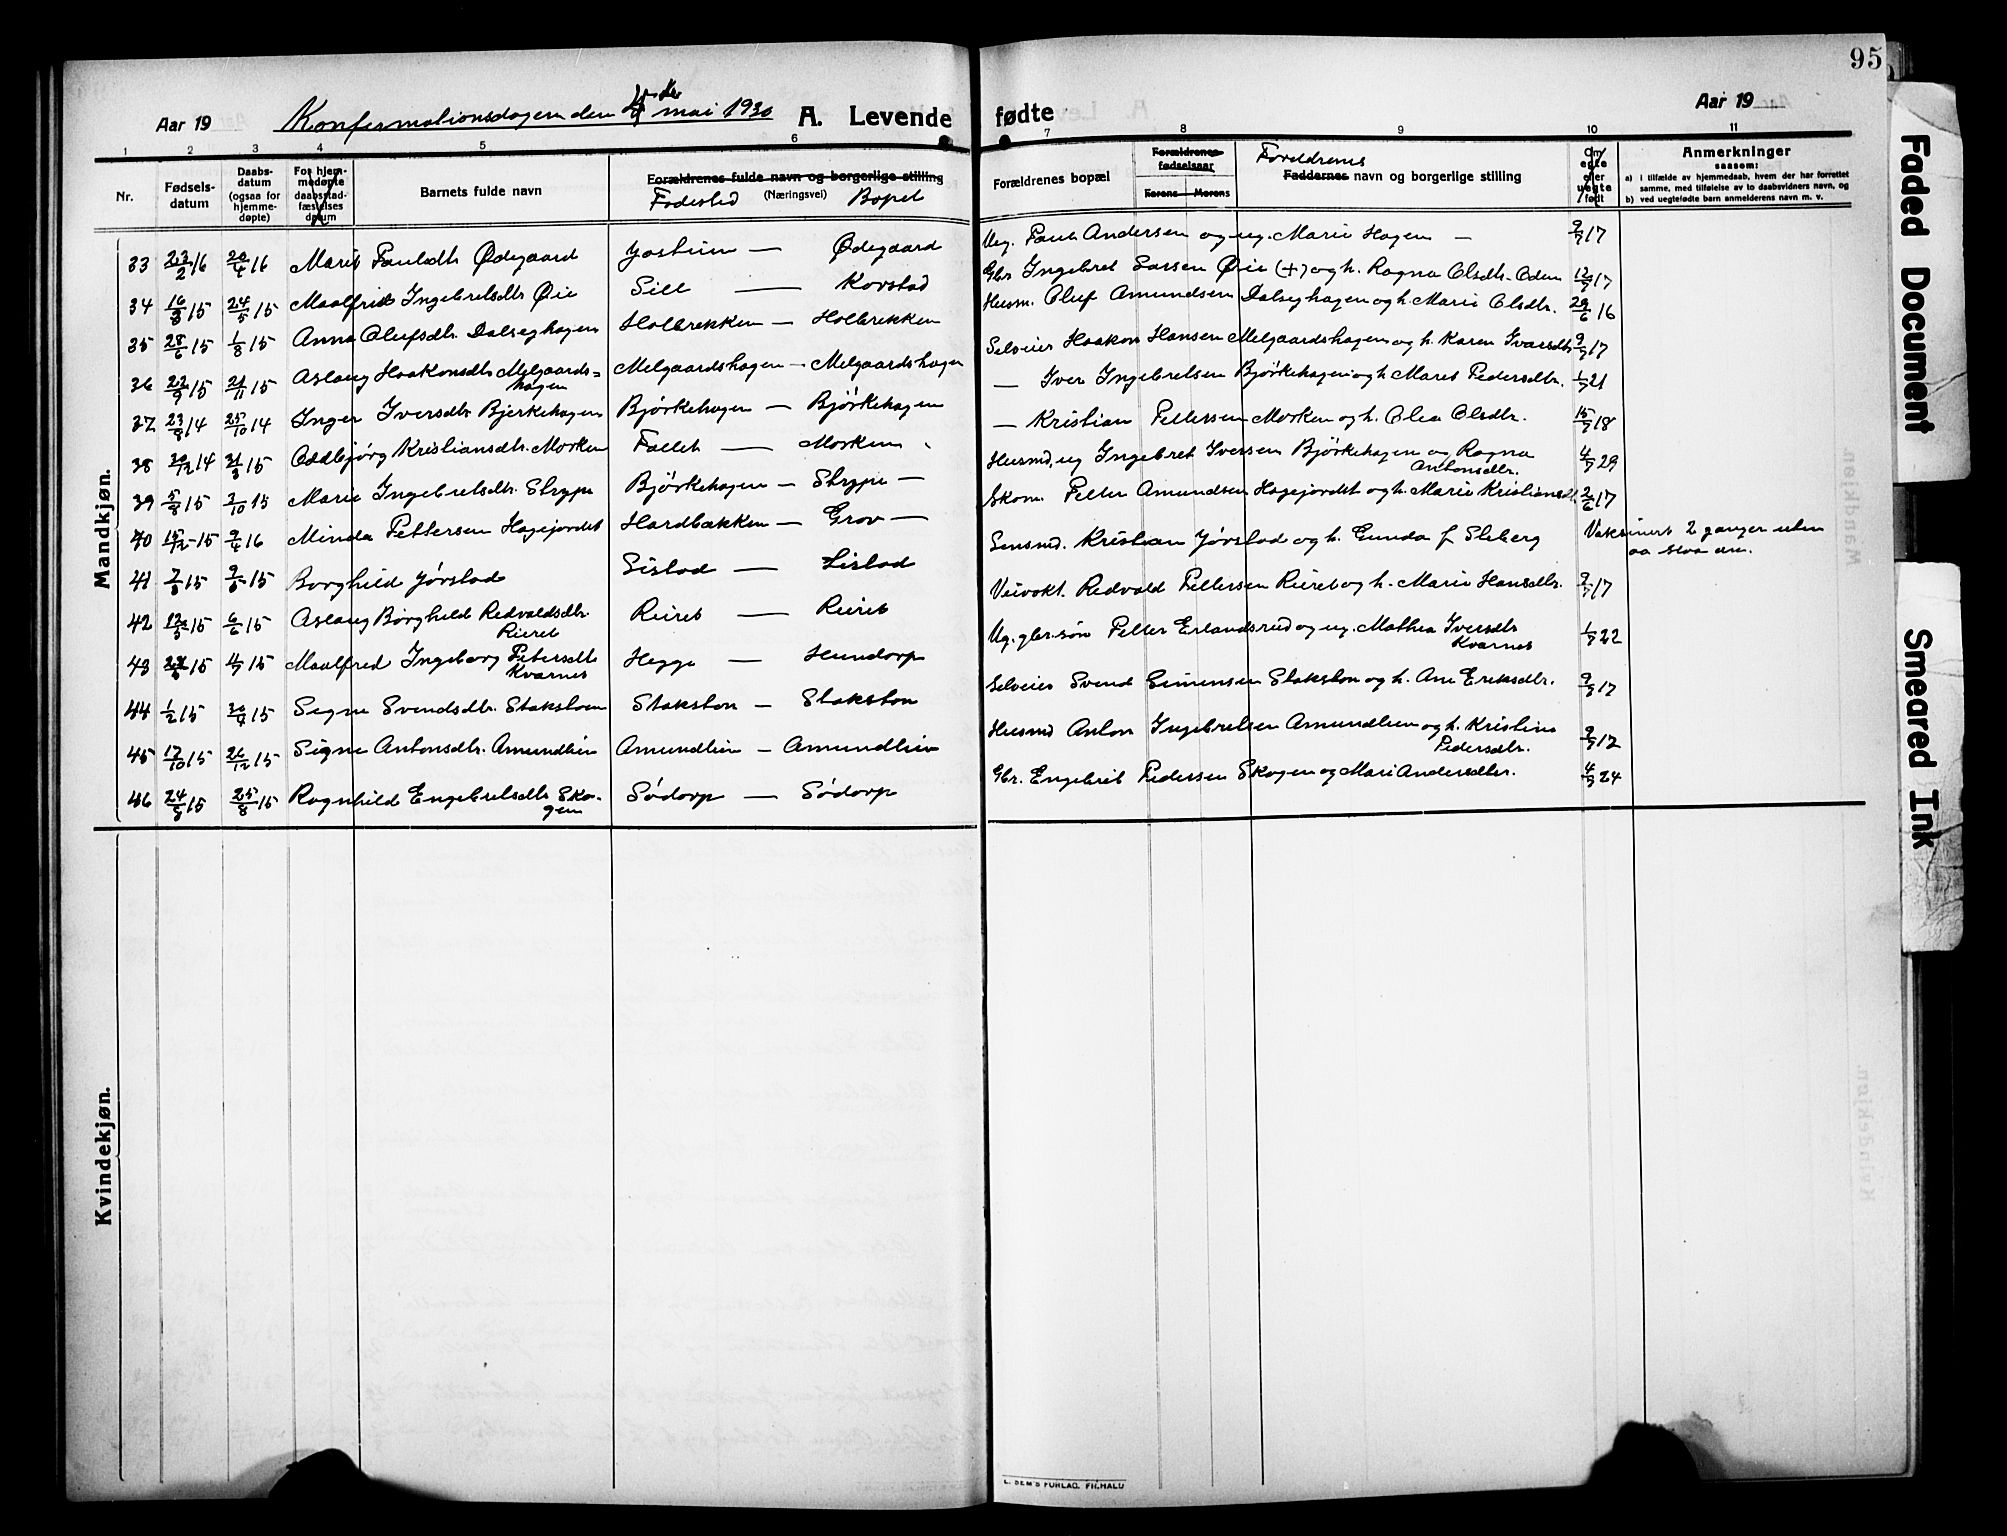 95
Aar 19
Konfirmationsdagen den 4de mai 1930
A. Levende
fødte
Aar 19
1 2 3 4 5 6 7 8 9 10 11
Nr.
Fødsels-
datum
Daabs-
datum
(ogsaa for
hjemme-
døpte)
For hjem-
medøpte
daabsstad-
fæstelses
datum
Barnets fulde navn
Forældrenes fulde navn og borgerlige stilling
(Næringsvei)
Fødested Bopel
Forældrenes bopæl
Forældrenes
fødselsaar
Farens Morens
Foreldrenes
Faddernes navn og borgerlige stilling
Om
egte
eller
uegte
født
Anmerkninger
saasom:
a) i tilfælde av hjemmedaab, hvem der har forrettet
samme, med tilføielse av to daabsvidners navn, og
b) ved uegtefødte barn anmelderens navn m. v.
Mandkjøn.
33 23/2 16 20/4 16 Marit Paulsdtr Ødegaard Jostein — Ødegaard Ug. Paul Andersen og ug. Marie Hagen — 9/7 17
34 16/3 15 24/5 15 Maalfrid Ingebretsdtr Øie Sill — Korstad Gbr Ingebret Larsen Øie (+) og h. Ragna Olsdtr. Oden 12/9 17
35 28/6 15 1/8 15 Anna Olufsdtr. Dalseghagen Holbrekken — Holbrekken Husm. Oluf Amundsen Dalseghagen og h. Marie Olsdtr. 29/6 16
36 22/9 15 21/11 15 Aslaug Haakonsdtr Melgaards=
hagen Melgaardshagen — Melgaardshagen Selveier Haakon Hansen Melgaardshagen og h. Karen Ivarsdtr 9/7 17
37 23/8 14 25/10 14 Inger Iversdtr Bjerkehagen Bjørkehagen — Bjørkehagen — Iver Ingebretsen Bjørkehagen og h Maret Pedersdtr. 1/7 21
38 20/12 14 21/3 15 Oddbjørg Kristiansdtr. Morken Fallet — Morken — Kristian Pettersen Morken og h. Olea Olsdtr. 15/7 18
39 5/8 15 3/10 15 Marie Ingebretsdtr. Strype Bjørkehagen — Strype — Husmd, ug Ingebret Iversen Bjørkehagen og Ragna
Antonsdtr. 4/7 29
40 15/12 - 15 9/4 16 Minda Pettersen Hagejordet Hardbakken — Grov — Skom. Petter Amundsen Hagejordet og h. Marie Kristiansdtr 2/6 17
41 15 15 Borghild Jørstad Sislad — Lislad Kristian Jørstad og h. Gunda f. Sleberg Vaksinert 2 ganger uten
aa slaa an.
42 15 6/6 15 Aslaug Borghild Redvaldsdtr.
Rieret Rieret — Rieret Veivokt. Redvald Pettersen Rieret og h. Marie Hansdtr. 9/7 17
43 15 4/7 15 Maalfred Ingeborg Petersdtr
Kvarnes Hegge — Hundorp Ug. gbr.søn Petter Erlandsrud og ug. Mathea Iversdtr
Kvarnes 1/7 22
44 1/2 15 15 Signe Svendsdtr. Stakstoen Stakston — Stakston Selveier Svend Simensen Stakston og h. Ane Eriksdtr. 9/7 17
45 17/10 15 26/12 15 Signe Antonsdtr. Amundlien Amundlien — Amundlien Husmd Anton Ingebretsen Amundlien og h. Kristine
Pedersdtr. 9/7 17
46 24/5 15 25/8 15 Ragnhild Engebretsdtr Sko-
gen Sødorp — Sødorp Gbr. Engebret Pedersen Skogen og Mari Andersdtr. 4/7 24
Kvindekjøn.
Faded Document
Smeared Ink